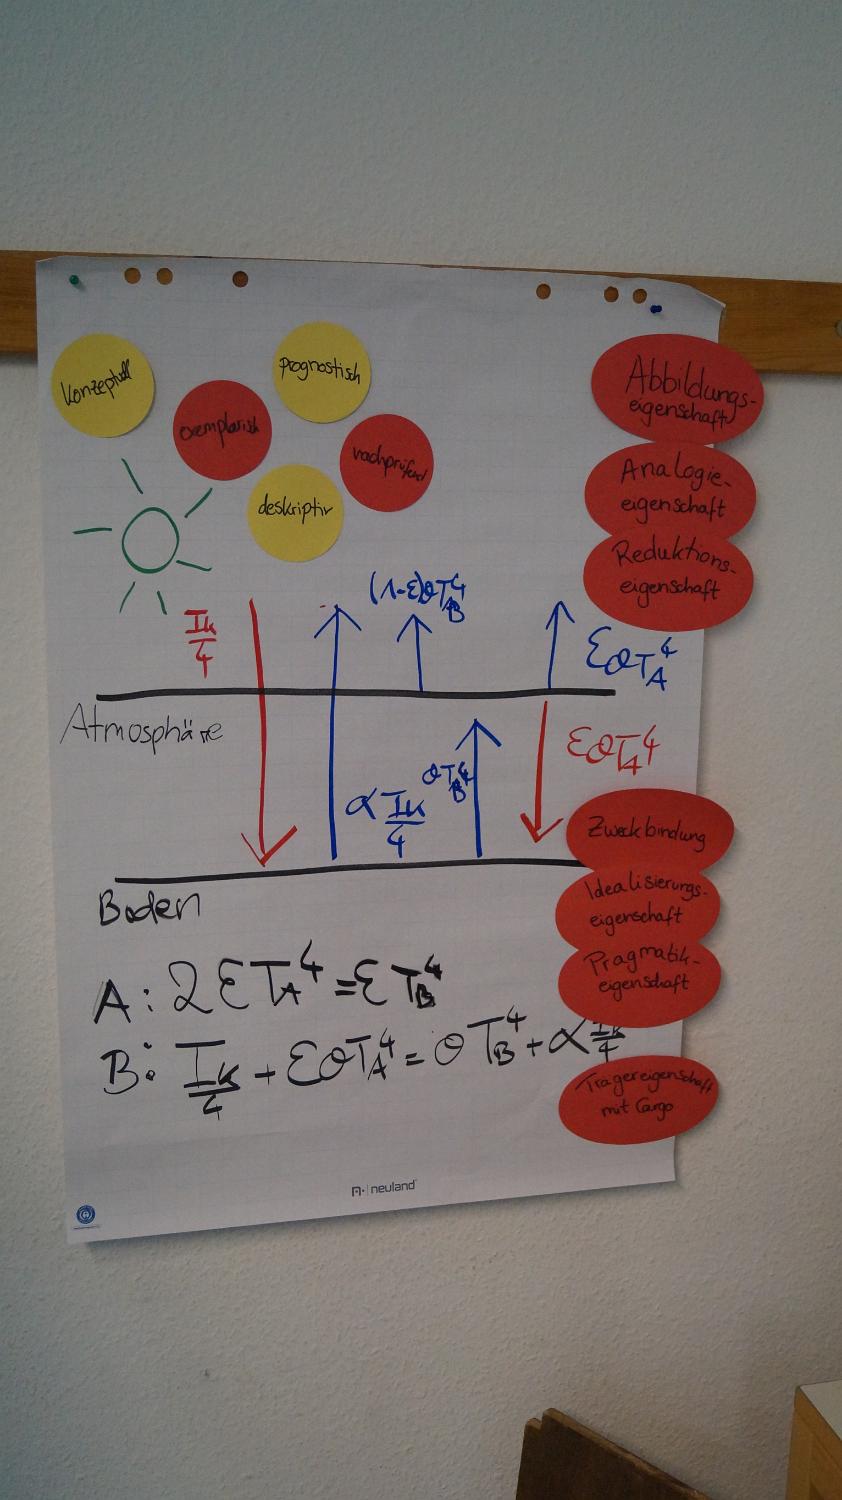 Konzeptuell
exemplarisch
prognostisch
nachprüfend
deskriptiv
Abbildungs-
eigenschaft
Analogie-
eigenschaft
Reduktions-
eigenschaft
Ik/4
(1-ε)σT_B^4
εσT_A^4
Atmosphäre
α Ik/4
σT_B^4
εσT_A^4
Boden
Zweckbindung
Idealisierungs-
eigenschaft
Pragmatik-
eigenschaft
A: 2εT_A^4 = εT_B^4
B: Ik/4 + εσT_A^4 = σT_B^4 + α Ik/4
Trägereigenschaft
mit Cargo
neuland